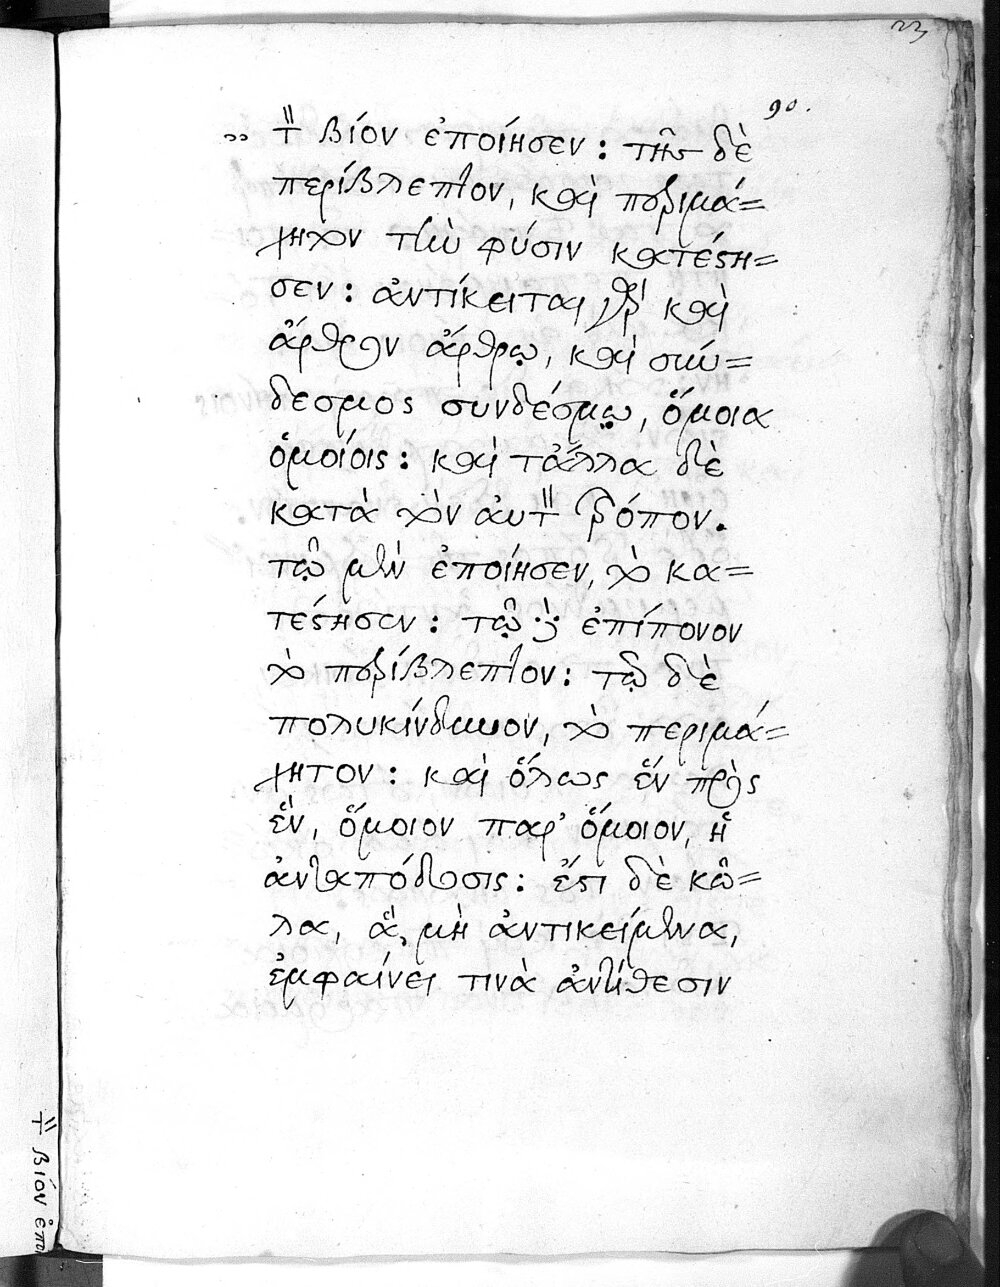 23
90.
„ τὸν βίον ἐποίησεν : τῆς δὲ
περίβλεπτον, καὶ περιμά=
χητον τὴν φύσιν κατέστη=
σεν : ἀντίκειται γὰρ καὶ
ἄρθρον ἄρθρῳ, καὶ σύν=
δεσμος συνδέσμῳ, ὅμοια
ὁμοίοις : καὶ τἆλλα δὲ
κατὰ τὸν αὐτὸν τρόπον.
τῷ μὲν ἐποίησεν, τὸ κα=
τέστησεν : τῷ δὲ ἐπίπονον
τὸ περίβλεπτον : τῷ δὲ
πολυκίνδυνον, τὸ περιμά=
χητον : καὶ ὅλως ἓν πρὸς
ἓν, ὅμοιον παρ' ὅμοιον, ἡ
ἀνταπόδοσις : ἔστι δὲ κῶ=
λα, ἃ, μὴ ἀντικείμενα,
ἐμφαίνει τινὰ ἀντίθεσιν
τὸν βίον ἐπο